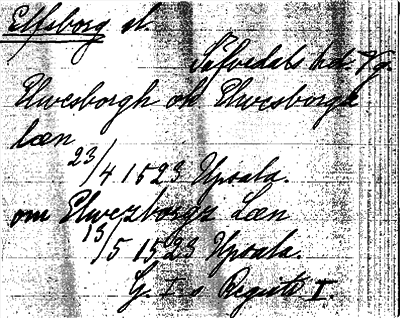 Elfsborg sl.
Säfvedals hd. Vg.
Elwesborgh ok Elwesborgx
læn
23/4 1523 Upsala.
om Elwezborgz Læn
13/5 1523 Upsala.
G. I:s Registr. I.